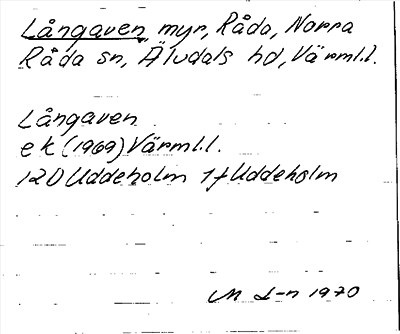 Långaven, myr, Råda, Norra
Råda sn, Älvdals hd, Värml.l.
Långaven
ek (1969) Värml.l.
12D Uddeholm 1f Uddeholm
M L-n 1970